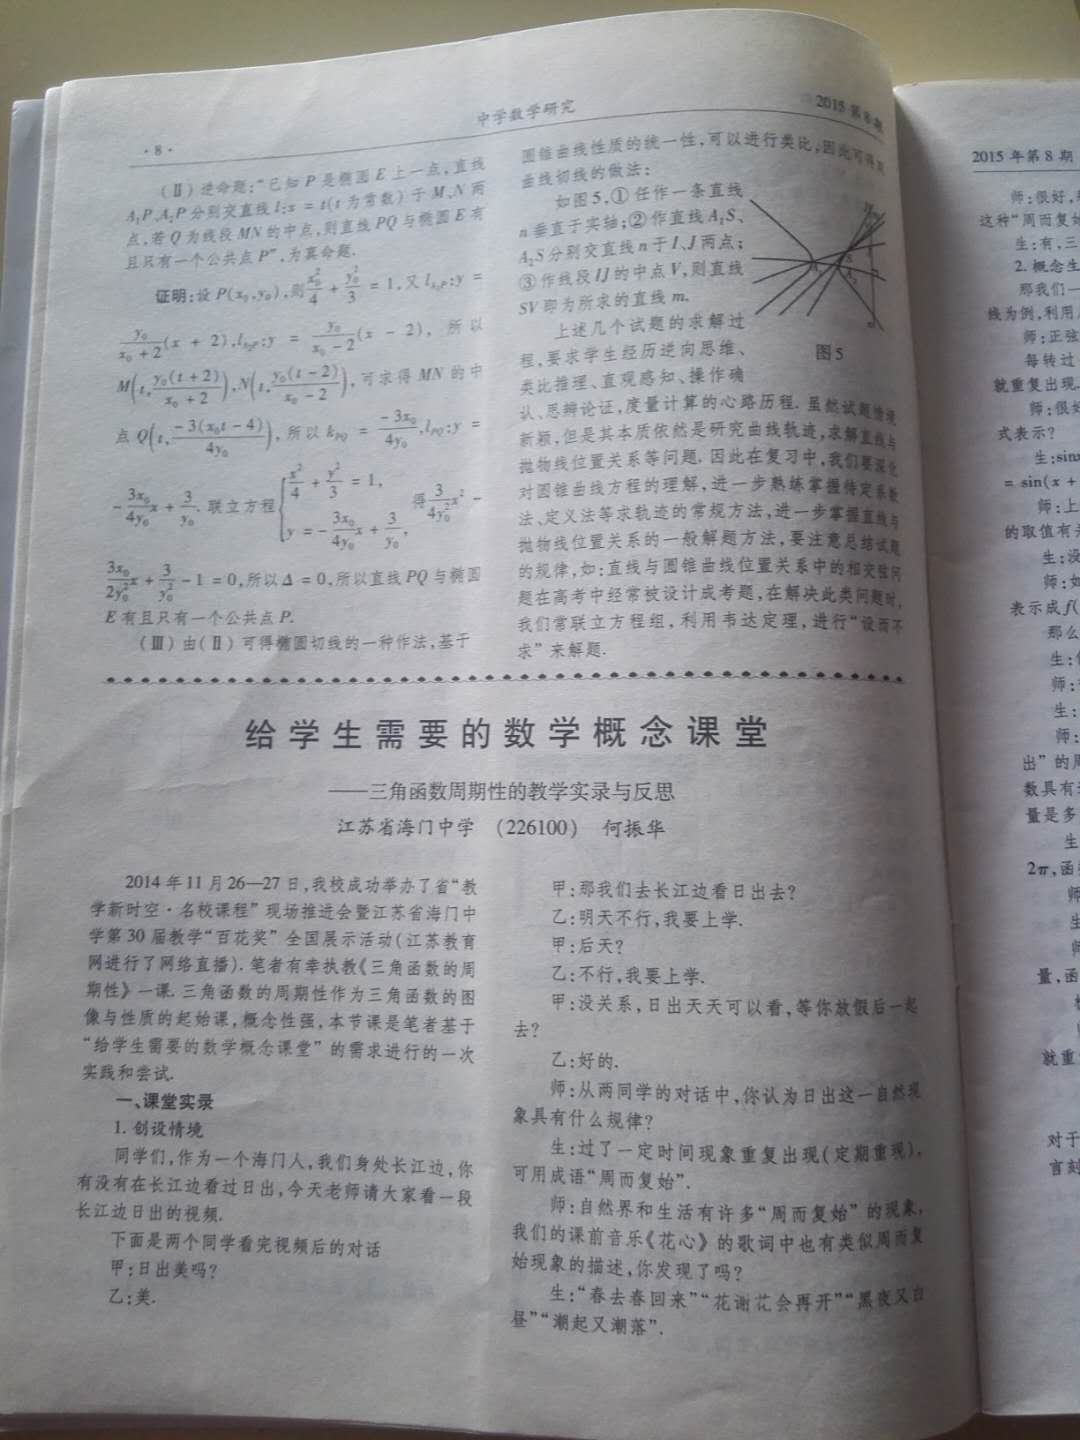 ·8·
中学数学研究
2015 第8期
(Ⅱ)逆命题:“已知P是椭圆E上一点,直线
A₁P、A₂P分别交直线l:x = t(t为常数)于M、N两
点,若Q为线段MN的中点,则直线PQ与椭圆E有
且只有一个公共点P”,为真命题.
证明:设P(x₀,y₀),则x₀²/4 + y₀²/3 = 1,又l_{A₁P}:y =
y₀/(x₀ + 2)(x + 2),l_{A₂P}:y = y₀/(x₀ - 2)(x - 2), 所以
M(t, y₀(t + 2)/(x₀ + 2)),N(t, y₀(t - 2)/(x₀ - 2)),可求得MN的中
点Q(t, -3(x₀t - 4)/4y₀), 所以k_{PQ} = -3x₀/4y₀,l_{PQ}:y =
-3x₀/4y₀ x + 3/y₀. 联立方程{x²/4 + y²/3 = 1, y = -3x₀/4y₀ x + 3/y₀, 得3/4y₀² x² -
3x₀/2y₀² x + 3/y₀² - 1 = 0,所以Δ = 0,所以直线PQ与椭圆
E有且只有一个公共点P.
(Ⅲ)由(Ⅱ)可得椭圆切线的一种作法,基于
圆锥曲线性质的统一性,可以进行类比,因此可得双
曲线切线的做法:
如图5,①任作一条直线
n垂直于实轴;②作直线A₁S、
A₂S分别交直线n于I、J两点;
③作线段IJ的中点V,则直线
SV即为所求的直线m.
图5
上述几个试题的求解过
程,要求学生经历逆向思维、
类比推理、直观感知、操作确
认、思辨论证,度量计算的心路历程. 虽然试题情境
新颖,但是其本质依然是研究曲线轨迹,求解直线与
抛物线位置关系等问题. 因此在复习中,我们要深化
对圆锥曲线方程的理解,进一步熟练掌握待定系数
法、定义法等求轨迹的常规方法,进一步掌握直线与
抛物线位置关系的一般解题方法,要注意总结试题
的规律,如:直线与圆锥曲线位置关系中的相交弦问
题在高考中经常被设计成考题,在解决此类问题时,
我们常联立方程组,利用韦达定理,进行“设而不
求”来解题.
给学生需要的数学概念课堂
——三角函数周期性的教学实录与反思
江苏省海门中学 (226100) 何振华
2014年11月26—27日,我校成功举办了省“教
学新时空·名校课程”现场推进会暨江苏省海门中
学第30届教学“百花奖”全国展示活动(江苏教育
网进行了网络直播). 笔者有幸执教《三角函数的周
期性》一课. 三角函数的周期性作为三角函数的图
像与性质的起始课,概念性强,本节课是笔者基于
“给学生需要的数学概念课堂”的需求进行的一次
实践和尝试.
一、课堂实录
1. 创设情境
同学们,作为一个海门人,我们身处长江边,你
有没有在长江边看过日出,今天老师请大家看一段
长江边日出的视频.
下面是两个同学看完视频后的对话
甲:日出美吗?
乙:美.
甲:那我们去长江边看日出去?
乙:明天不行,我要上学.
甲:后天?
乙:不行,我要上学.
甲:没关系,日出天天可以看,等你放假后一起
去?
乙:好的.
师:从两同学的对话中,你认为日出这一自然现
象具有什么规律?
生:过了一定时间现象重复出现(定期重现),
可用成语“周而复始”.
师:自然界和生活有许多“周而复始”的现象,
我们的课前音乐《花心》的歌词中也有类似周而复
始现象的描述,你发现了吗?
生:“春去春回来”“花谢花会再开”“黑夜又白
昼”“潮起又潮落”.
2015年第8期
师:很好,
这种“周而复始
生:有,三
2. 概念生
那我们一
线为例,利用
师:正弦
每转过
就重复出现
师:很好
式表示?
生:sin
= sin(x +
师:上
的取值有
生:没
师:如
表示成f(
那么
生:
师:
生:
师:
出”的周
数具有
量是多
生
2π,函
师
生
师
量,函
就重
对于
言刻